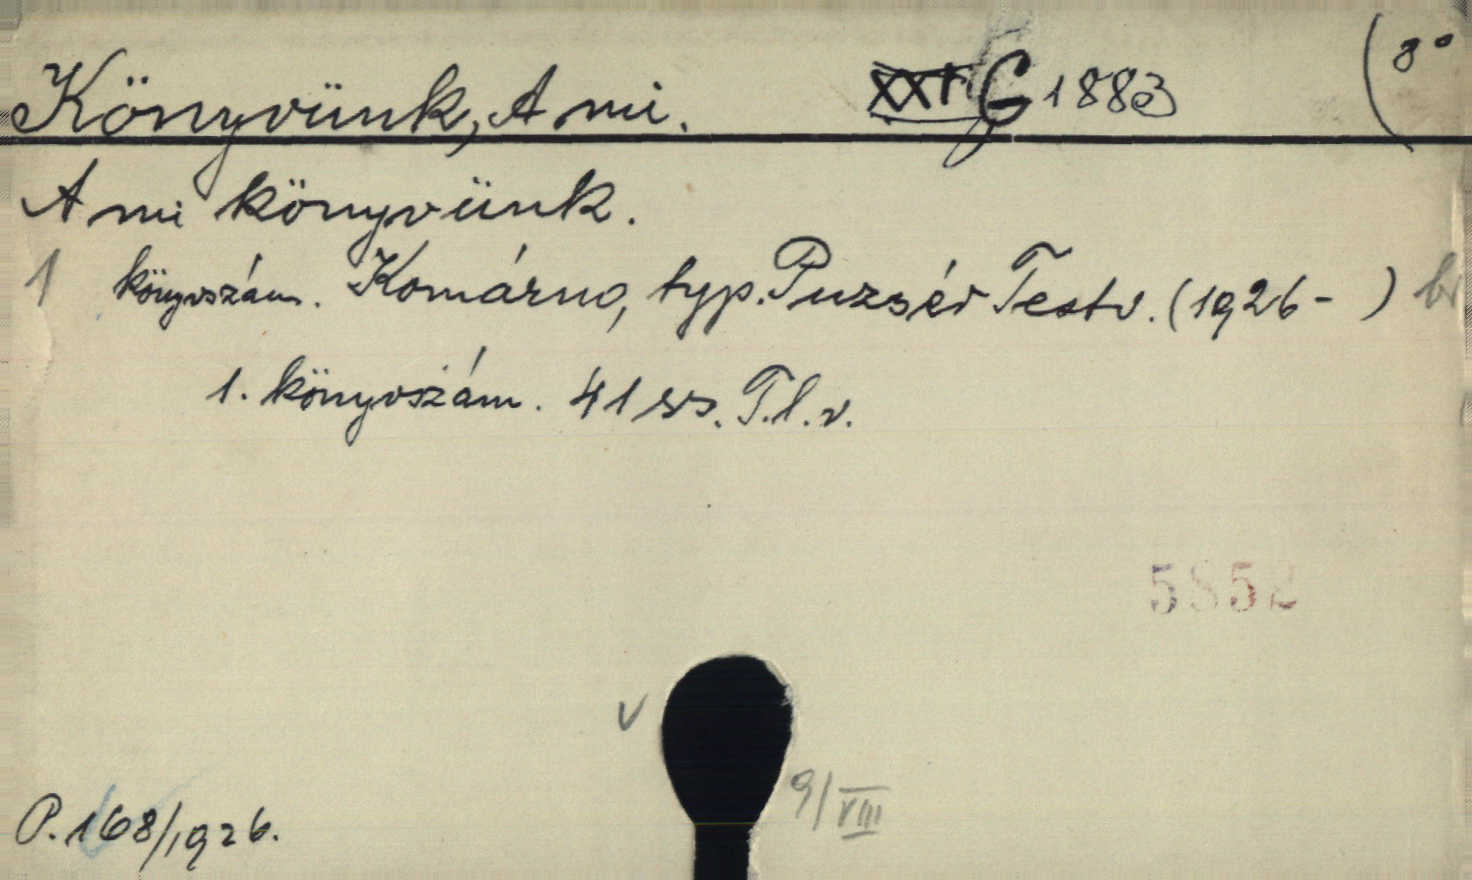 Könyvünk, A mi. XXI G 1883 (8°
A mi könyvünk.
1 könyvszám. Komárno, typ. Puzsér Testv. (1926- ) br
1. könyvszám. 41 ss. T.l.v.
5852
v
9/VIII
P. 168/1926.